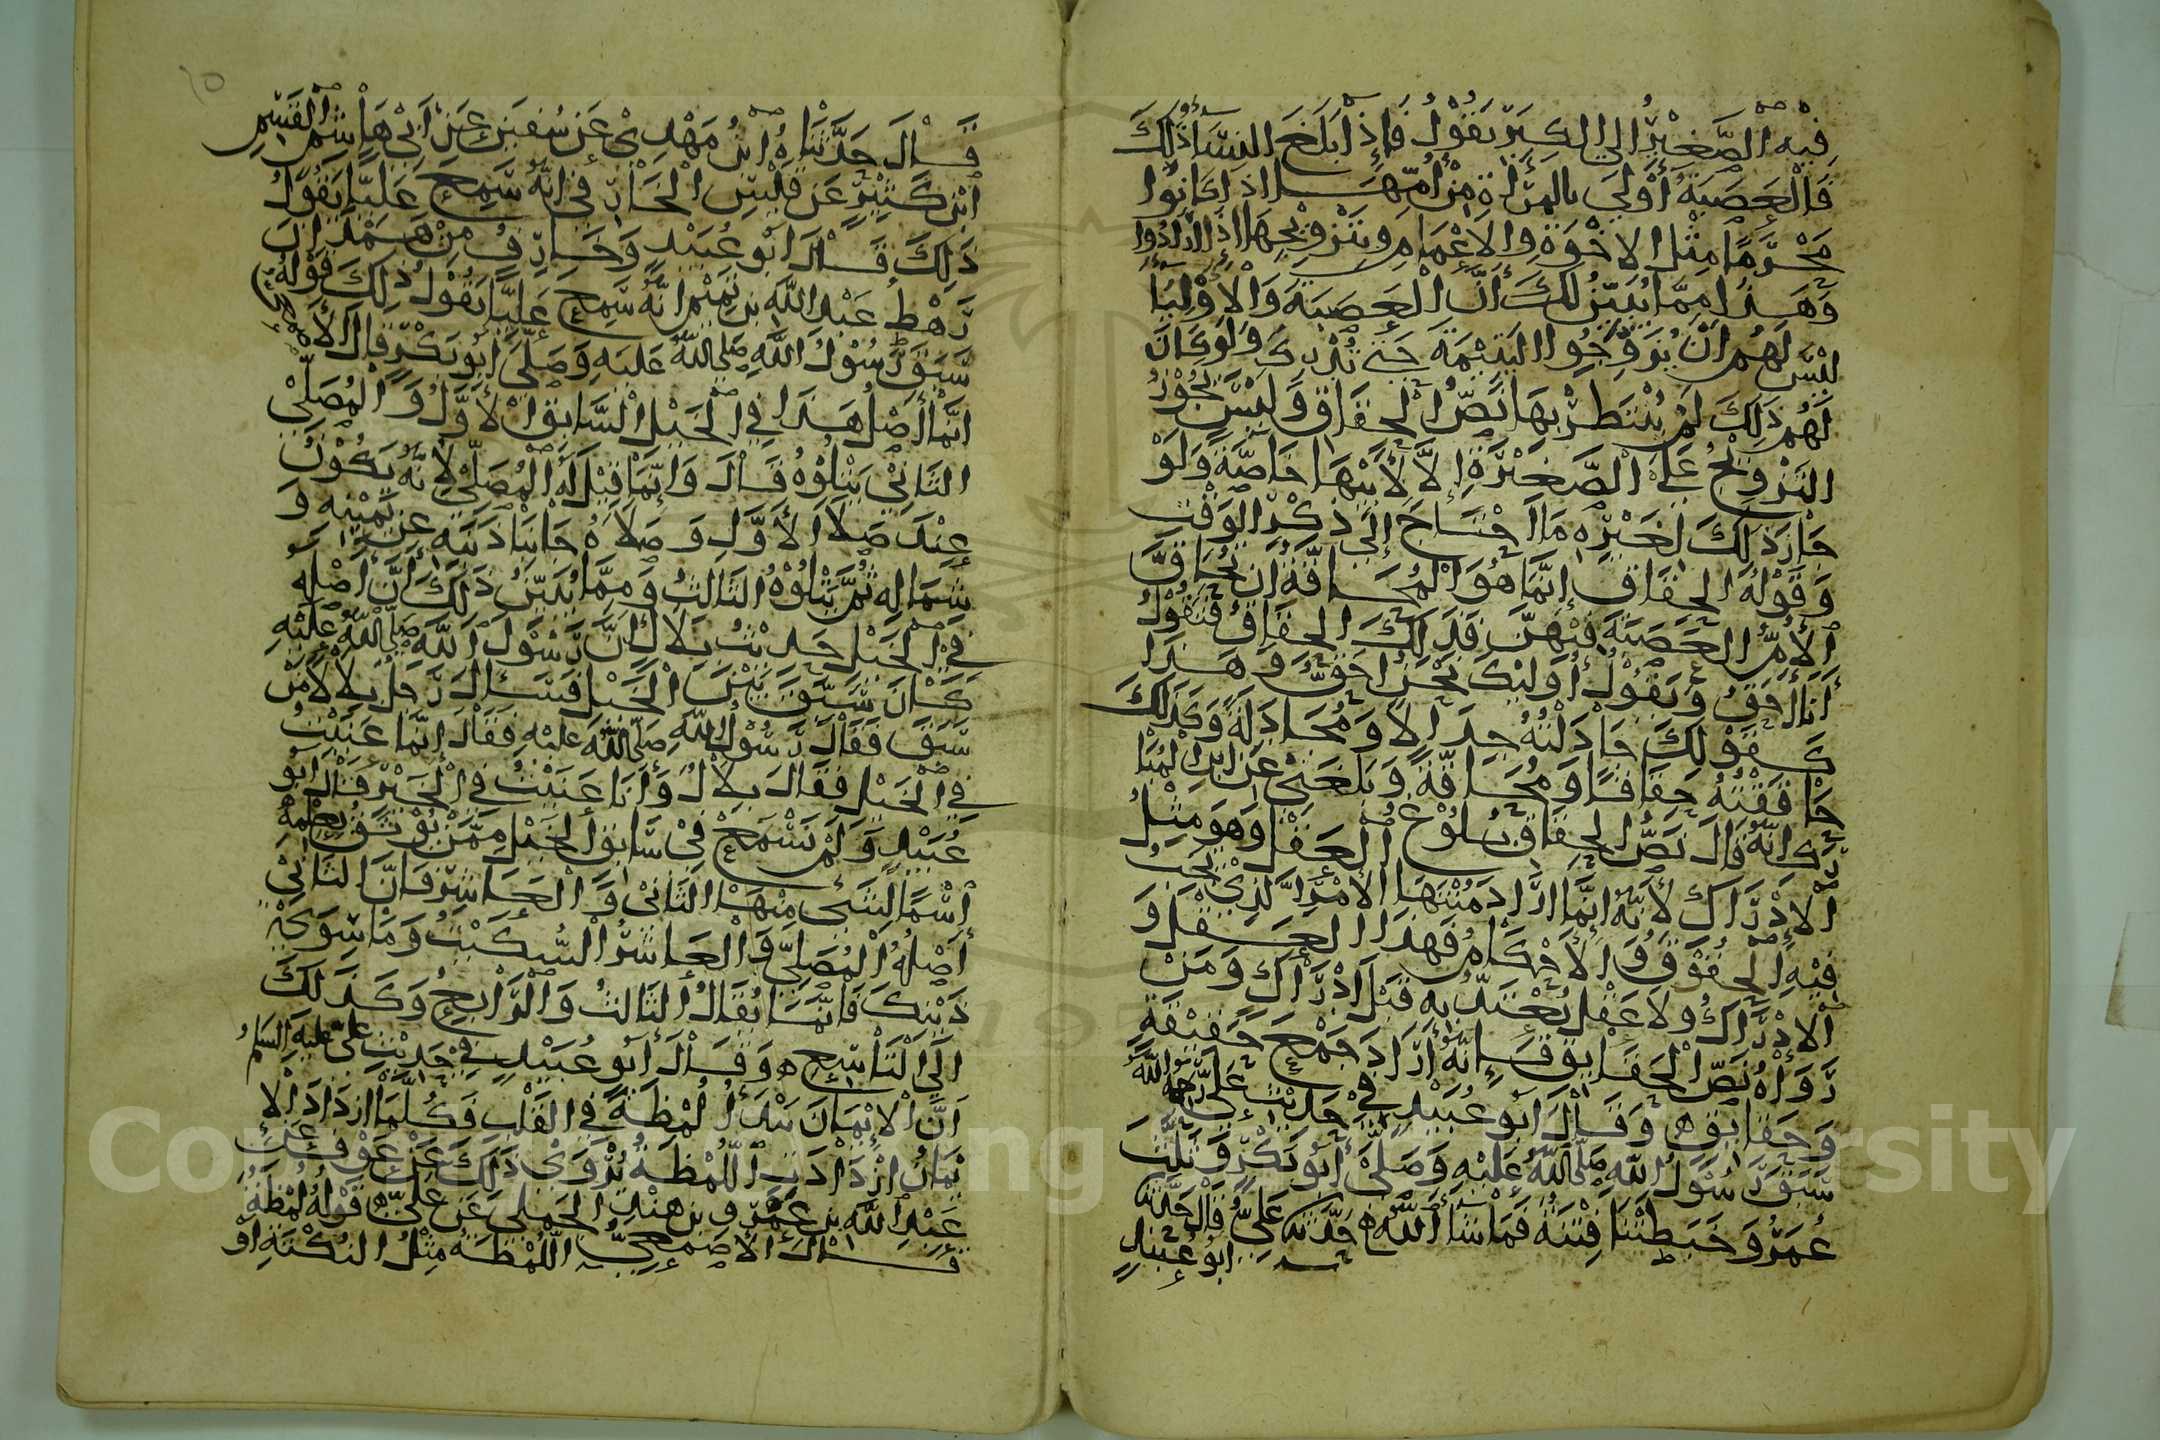 فِيْهِ الصَّغِيْرُ إلى الكِبَرِ يَقُوْلُ فَإذَا بَلَغَ النِسَاءُ ذلِكَ
فَالْعَصَبَةُ أَوْلَى بالمرأةِ مِنْ أُمِّهَا اذا كانوا
مَحْرَمًا مِثْلَ الاخْوَةِ والاعْمَامِ وبتزويجها اذا ارَادُوا
وَهَذا مِمَّا يُبَيِّنُ لَكَ أَنَّ الْعَصَبَةَ وَالأوْلِيَا
لَيْسَ لَهُم انْ يُزَوِّجُوا اليَتِيْمَةَ حَتى تُدْرِكَ وَلَو كَانَ
لَهُم ذلِكَ لَمْ يُنْتَظَرْ بِهَا نَصُّ الْحِقَاقِ وَلَيْسَ يَجُوْزُ
التَزْويْجُ عَلى الْصَّغِيْرَةِ إلاَّ لأَبِيْهَا خَاصَّةً وَلَوْ
جَازَ ذلِكَ لغَيْرِه مَا احْتَاجَ إلى ذِكْرِ الوَقْتِ
وَقَوْلُهُ الحِقَاق إنَّمَا هُوَ الْمُحَاقَّةُ ان تُحَاقَّ
الأُمُّ العَصَبَةَ فيْهنَّ فَذلِكَ الحِقَاقُ فَتَقُوْلُ
أَنَا أَحَقُّ وَيَقُوْلُ أُولَئِكَ نَحْنُ أَحَقُّ وَهَذَا
كَقَوْلِكَ جَادَلْتُهُ جِدَالاً وَمُجَادَلَةً وَكَذلِكَ
حَاقَقْتُهُ حِقَاقًا وَمُحَاقَّةً وَبَلَغَنِيْ عَن ابْنِ الْمُبَا
رَكِ انَّهُ قَالَ نَصُّ الحِقَاقِ بُلُوْغُ الْعَقْلِ وَهَوَ مِثْلُ
الْإدْرَاكِ لأَنَّهُ إنَّمَا ارَادَ مُنْتَهَا الأَمْرِ الَّذِيْ يَجِبُ
فِيْهِ الْحُقُوْقُ وَالأَحْكَامُ فَهذَا الْعَقْلُ وَ
الْإدْرَاكُ ولا عَقْلَ يُعْتَدُّ بِهِ قَبْلَ ادْرَاكٍ وَمَنْ
رَوَاهُ نَصّ الْحَقَايق فَإنَّهُ أَرَادَ جَمْعَ حَقِيْقَةٍ
وَحَقَايِق ه وَقَالَ أَبو عُبَيْدٍ فِيْ حَدِيْثِ عَلِيٍّ رَحِمَهُ اللهُ
سَبَقَ رَسُوْلُ اللهِ صَلى اللهُ عَلَيْهِ وَصَلَّى أَبُو بَكْرٍ وَثَلَّثَ
عُمَرُ وَخَبَطَتْنَا فِتْنَةٌ فَمَا شَا اللهُ ه حَدَّثَنَا عَلِيٌّ قَالَ حَدَّثَنَا
أبو عُبَيْدٍ
قَالَ حَدَّثَنَاهُ ابْنُ مَهْدِيْ عَن سُفين عَن أَبي هَاشِمٍ الْقَسِمِ
ابْنِ كَثِيْرٍ عَن قَيْسٍ الخَارِفي انّهُ سَمِعَ عَلِيًّا يَقُوْلُ
ذلِكَ قَالَ ابو عُبَيْدٍ وَخَارِفُ مِنْ هَمْدَانَ
رَهْطُ عَبْدِ اللهِ بنِ نمير انَّهُ سَمِعَ عَلِيًّا يَقُوْلُ ذلِكَ قَوْلُهُ
سَبَقَ رَسُوْلُ اللهِ صَلى اللهُ عَليهِ وَصَلَّى أَبُو بَكْرٍ قال الأَصْمَعي
إنَّمَا أَصْلُ هَذَا فِي الْخَيْلِ السَّابِقُ الأَوَّلُ وَالْمُصَلِّيْ
الثَانِيْ يَتْلُوْهُ قَالَ وَانَّمَا قِيْلَ لَهُ الْمُصَلِّيْ لأَنَّهُ يَكُوْنُ
عِنْدَ صَلَا الأوَّلِ وَصَلَاهُ جَانِبَا ذَنَبِهِ عَن يَمِيْنِهِ وَ
شِمَالِهِ ثُمَّ يَتْلُوْهُ الثَالِثُ وَمِمَّا يُبَيِّنُ ذلِكَ أَنَّ أَصْلَه
فِي الْخَيْلِ حَدِيْثُ بِلالٍ أَنَّ رَسُوْلَ اللهِ صَلى اللهُ عَلَيْهِ
كَانَ سَبَّقَ بَيْنَ الْخَيْلِ فَسَأَلَ رَجُلٌ بِلَالاً مَنْ
سَبَقَ فَقَالَ رَسُوْلُ اللهِ صَلى اللهُ عَلَيْهِ فَقَالَ إنَّمَا عَنَيْتُ
فِي الْخَيْلِ فَقَالَ بِلَالٌ وَأَنَا عَنَيْتُ فِي الْخَيْرِ قَالَ أبُو
عُبَيْدٍ وَلَمْ نَسْمَعْ فِيْ سَابِق الخَيْلِ مِمَّنْ يُوْثَقُ بِعِلْمِهِ
اسْمًا لِشَىْءٍ مِنْهَا الثَانِىْ وَالْعَاشِر فَانَّ الثَانِيْ
اسْمُهُ الْمُصَلِّي وَالْعَاشِرُ السُّكَيْتُ وَمَا سِوَى
ذَيْنِكَ فَانَّمَا يُقَالُ الثَالِثُ وَالرَّابِعُ وَكَذلِكَ
إلَى الْتَاسِعِ ه وَقَالَ أَبو عُبَيْدٍ فِيْ حَدِيْثِ عَليٍّ عليه السلمُ
انَّ الْاِيْمَانَ يَبْدَأُ لُمْظَةً فِي القَلْبِ فَكُلَّمَا ازْدَادَ الْإ
يْمَانُ ازْدَادَتِ اللُّمْظَةُ يُرْوَى ذلِكَ عَنْ عَوْفٍ عَن
عَبْدِ اللهِ بنِ عَمْرِو بنِ هِنْدٍ الجَمَلي عَن عَلِيٍّ ه قَوْلُهُ لُمْظَةٌ
قَالَ الأَصْمَعِيُّ اللُّمْظَةُ مِثْلُ النُكْتَةِ اوْ